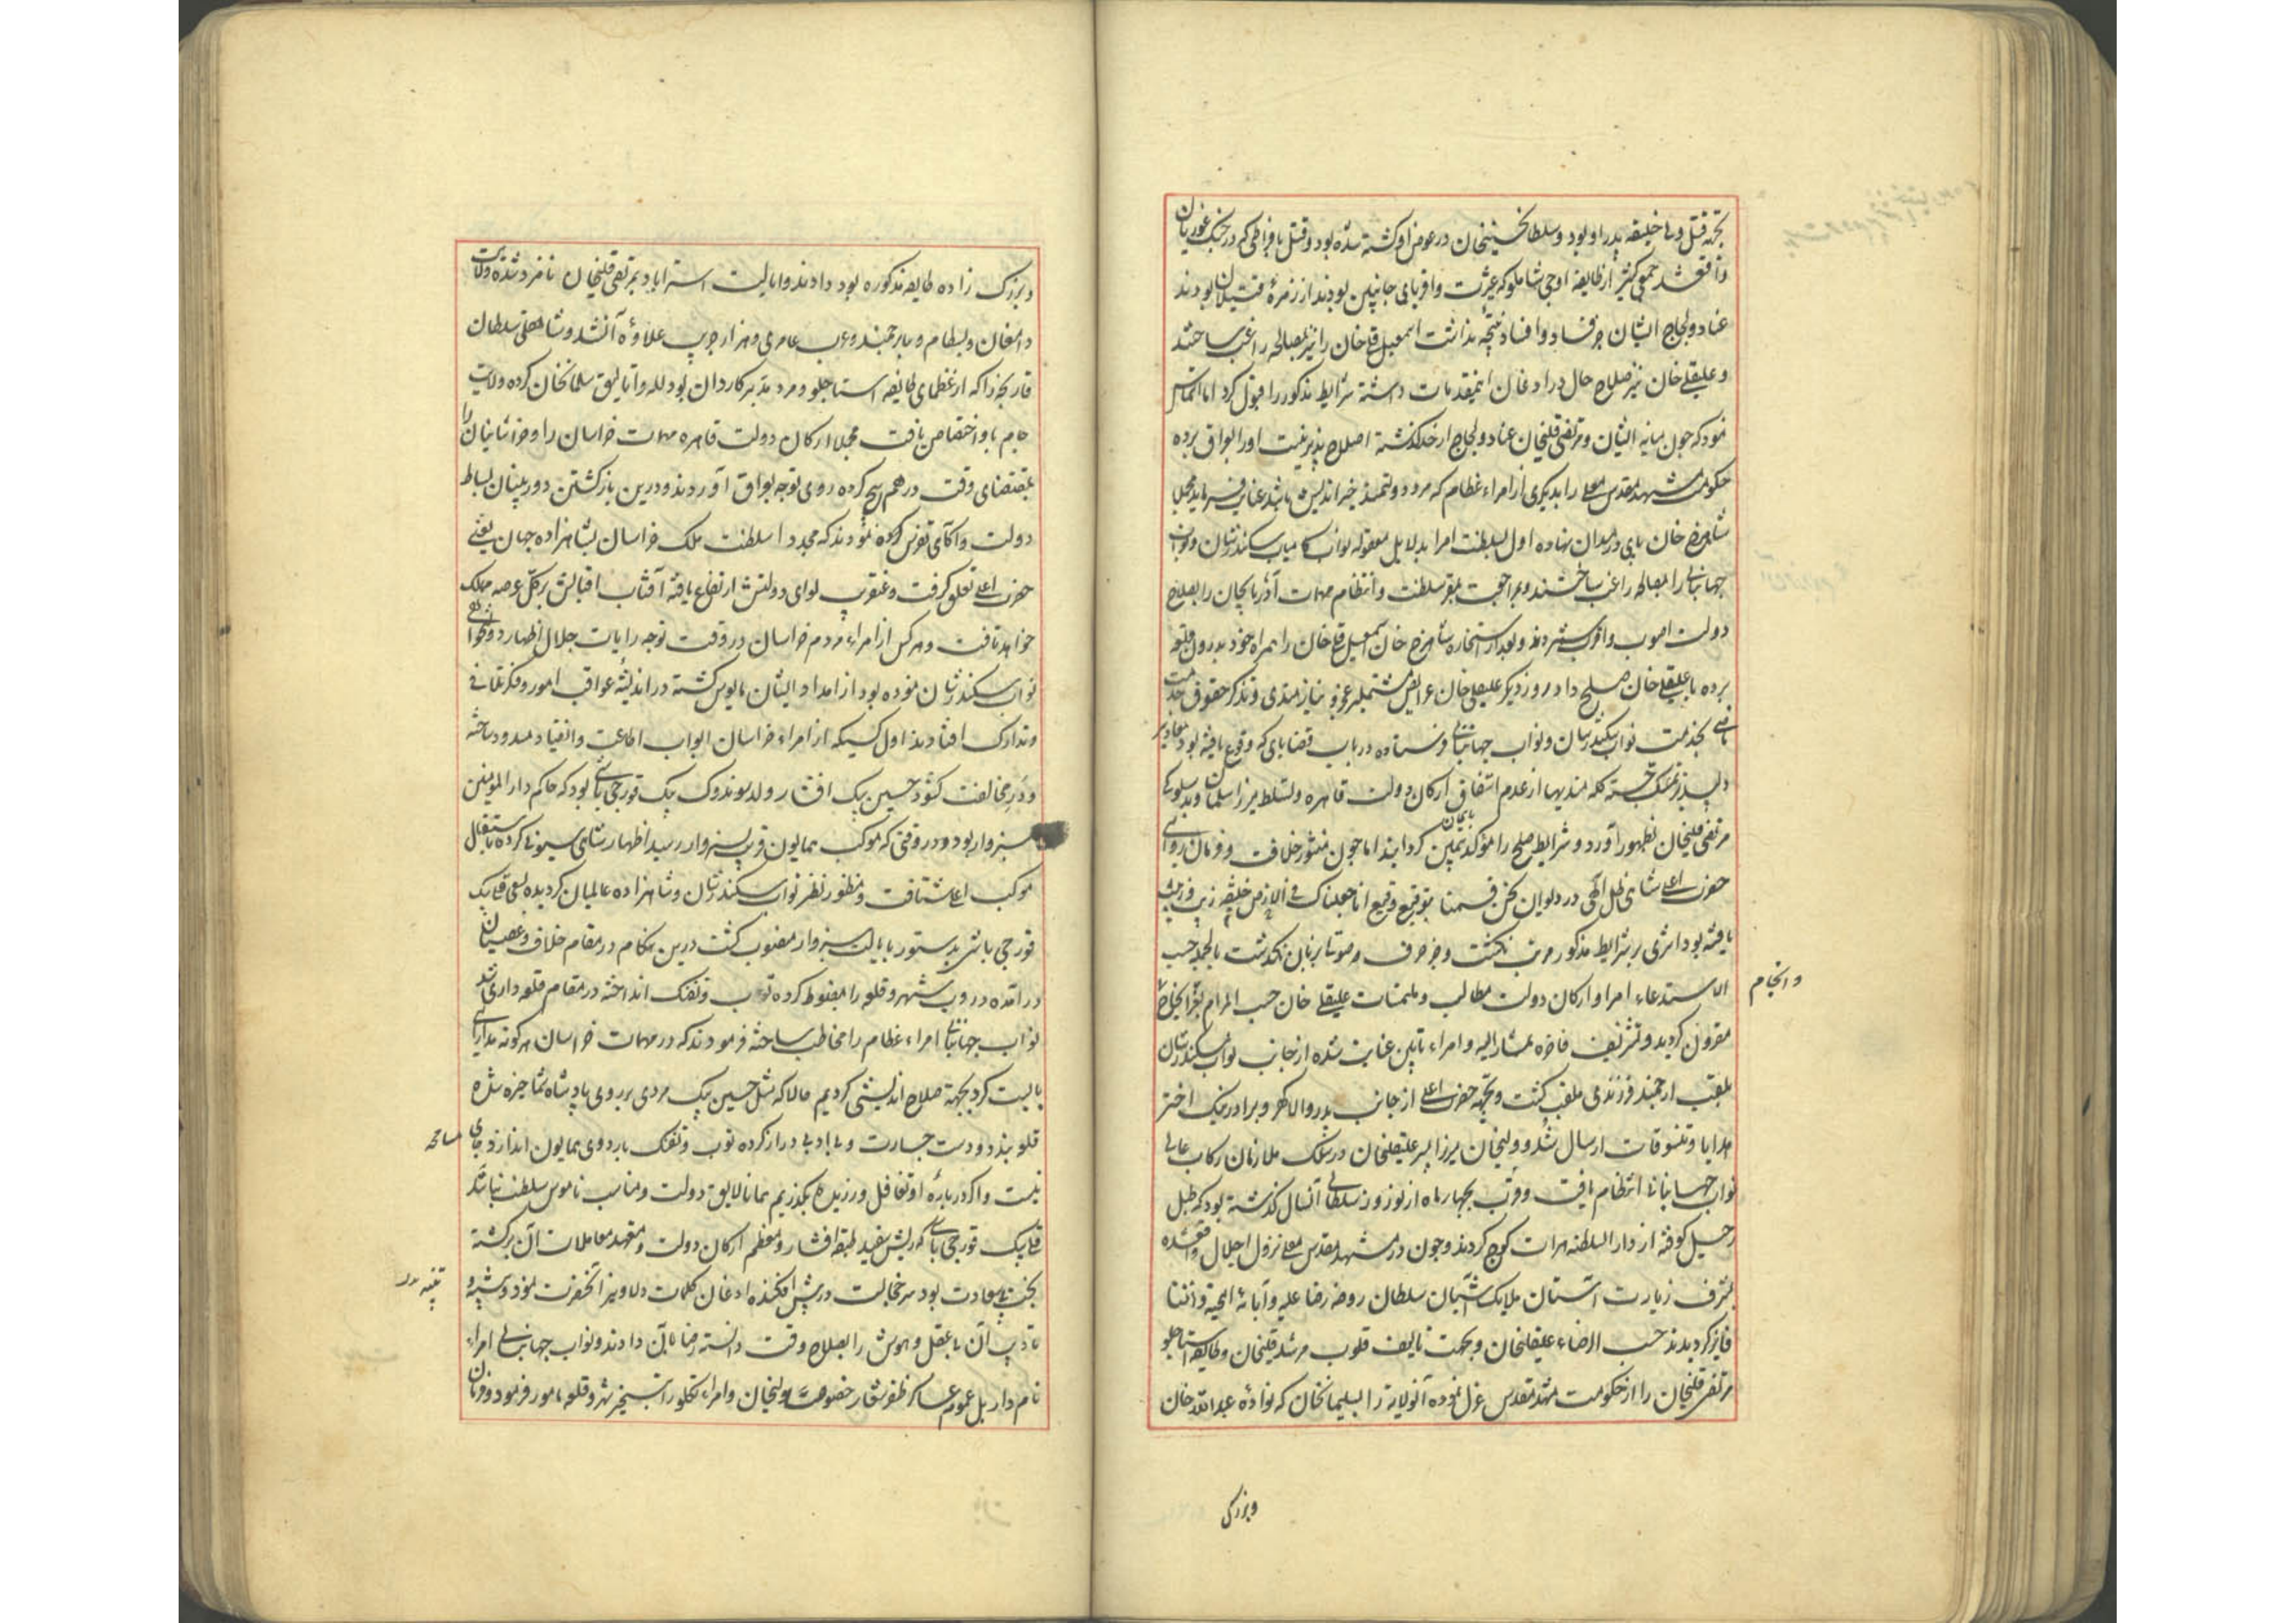 بجهة قتل ولی خلیفه پدر او بود و سلطانحسینخان در عوض او کشته شده بود و قتل بافراطی که در جنگ غوریان
واقع شد جمعی کثیر از طایفه اوجی شاملو که عشرت و اقربای جانبین بودند از زمرهٔ قتیلان بودند
عناد و لجاج ایشان جز فساد و افساد نتیجه نداشت اسمعیل قلیخان را نیز بمصالحه راغب ساختند
و علیقلی خان نیز صلاح حال در اذعان اینمقدمات دانسته شرایط مذکور را قبول کرد اما التماس
نمود که چون میانه ایشان و مرتضی قلیخان عناد و لجاج از حد گذشته اصلاح پذیر نیست او را بعراق برده
حکومت مشهد مقدس معلی را بدیگری از امراء عظام که مرد دولتمند خیر اندیش باشد عنایت فرمایند مجملا
شاهرخ خان پای در میدان نهاده اول بسلطنت امرا بدلایل معقوله نواب کامیاب سکندرشان و نواب
جهانبانی را بمصالحه راغب ساختند و مراجعت بمقر سلطنت و انتظام مهمات آذربایجان را بصلاح
دولت اصوب و اقرب شمردند و بعد از استخاره شاهرخ خان اسمعیل قلیخان را همراه خود بدرون قلعه
برده با علیقلی خان صلح داد و روز دیگر علیقلی خان عرایض مشتمل بر عجز و نیازمندی و تذکر حقوق خدمت
بخدمت نواب سکندرشان و نواب جهانبانی فرستاده در باب قضایای که وقوع یافته بود معاذیر
دلپذیر تمسک جسته گله مندیها از عدم اتفاق ارکان دولت قاهره و تسلط میرزا سلمان و بدسلوکی
مرتضی قلیخان بظهور آورد و شرایط صلح را مؤکد بیمین بایمان گردانید اما چون منشور خلافت و فرمان روائی
حضرت اعلی شاهی ظل الهی در دیوان نحن قسمنا بتوقیع وقیع انا جعلناک فی الارض خلیفه زیب و زینت
یافته بود اثری بر شرایط مذکور مرتب نگشت و جز حرف و صوت بر زبان نگذشت بالجمله حسب
الاستدعاء امرا و ارکان دولت مطالب و ملتمسات علیقلی خان حسب المرام بعز انجاح
و انجام
مقرون گردید و تشریف فاخره بمشارالیه و امراء تابین عنایت شده از جانب نواب سکندرشان
بلقب ارجمند فرزندی ملقب گشت و بجهة حضرت اعلی از جانب پدر والاگهر و برادر نیک اختر
هدایا و تنسوقات ارسال شد و ولیخان میرزا پسر علیقلیخان در سلک ملازمان رکاب عالی
نواب جهانبانی انتظام یافت و قرب بچهار ماه از نوروز سلطانی آنسال گذشته بود که طبل
رحیل کوفته از دار السلطنه هرات کوچ کردند و چون در مشهد مقدس معلی نزول اجلال واقع شده
بشرف زیارت آستان ملایک آشیان سلطان روضه رضا علیه و آبائه التحیة و الثنا
فایز گردیدند حسب الرضاء علیقلیخان و بجهت تالیف قلوب مرشد قلیخان و طایفه استاجلو
مرتضی قلیخان را از حکومت مشهد مقدس عزل نموده آنولایة را بسلیمانخان که نوادهٔ عبدالله خان
وبزرگ
و بزرگ زاده طایفه مذکوره بود دادند و ایالت استراباد بمرتضی قلیخان نامزد شده ولایت
دامغان و بسطام و بیارجمند و عرب عامری و هزار جریب علاوهٔ آن شد و شاهقلی سلطان
قارنجه را که از عظمای طایفه استاجلو و مرد مدبر کاردان بود لله و اتالیق سلمانخان کرده ولایت
جام باو اختصاص یافت مجملا ارکان دولت قاهره مهمات خراسان را و خراسانیان را
بمقتضای وقت درهم پیچ کرده روی توجه بعراق آوردند و درین بازگشتن دوربینان بساط
دولت و اکاهی تفرس کرده نمودند که مجددا سلطنت ملک خراسان بشاهزاده جهان یعنی
حضرت اعلی تعلق گرفت و عنقریب لوای دولتش ارتفاع یافته آفتاب اقبالش بر کل عرصه ممالک
خواهد تافت و هر کس از امراء و مردم خراسان در وقت توجه رایات جلال اظهار دولتخواهی
نواب سکندرشان نموده بود از امداد ایشان مایوس گشته در اندیشه عواقب امور و فکر تلافی
و تدارک افتادند اول کسیکه از امراء خراسان ابواب اطاعت و انقیاد مسدود ساخته
و در مخالفت گشود حسین بیک افشار ولد سوندوک بیک قورچی باشی بود که حاکم دار المؤمنین
سبزوار بود و در وقتی که موکب همایون قریب سبزوار رسید اظهار شاهی سیونی کرده باستقبال
موکب اعلی شتافت و منظور نظر نواب سکندرشان و شاهزاده عالمیان گردیده بسعی قلی بیک
قورچی باشی بدستور بایالت سبزوار منصوب گشت درین هنگام در مقام خلاف و عصیان
در آمده دروب شهر و قلعه را مضبوط کرده توپ و تفنک انداخته در مقام قلعه داری شد
نواب جهانبانی امراء عظام را مخاطب ساخته فرمودند که در مهمات خراسان هر گونه مدارائی
بایست کرد بجهة صلاح اندیشی کردیم حالا که مثل حسین بیک مردی بر روی پادشاه شما خیره شده
قلعه بندد و دست جسارت و بی ادبی دراز کرده توپ و تفنک باردوی همایون اندازد جای
مسامحه
نیست و اگر درباره او تغافل ورزیده بگذریم همانا لایق دولت و مناسب ناموس سلطنت نباشد
قلی بیک قورچی باشی که ریش سفید طبقه افشار و معظم ارکان دولت و متعهد معاملات آن برگشته
بخت بیسعادت بود سر خجالت در پیش افکنده اذعان کلمات دلاویز آنحضرت نمود و تنبیه و
تنبیه
تادیب آن بی عقل و هوش را بصلاح وقت دانسته رضا بآن دادند و نواب جهانبانی امراء
نامدار بل عموم عساکر ظفر شعار خصوصا ولیخان و امراء تکلو را بتسخیر شهر و قلعه مامور فرمود و فرمان